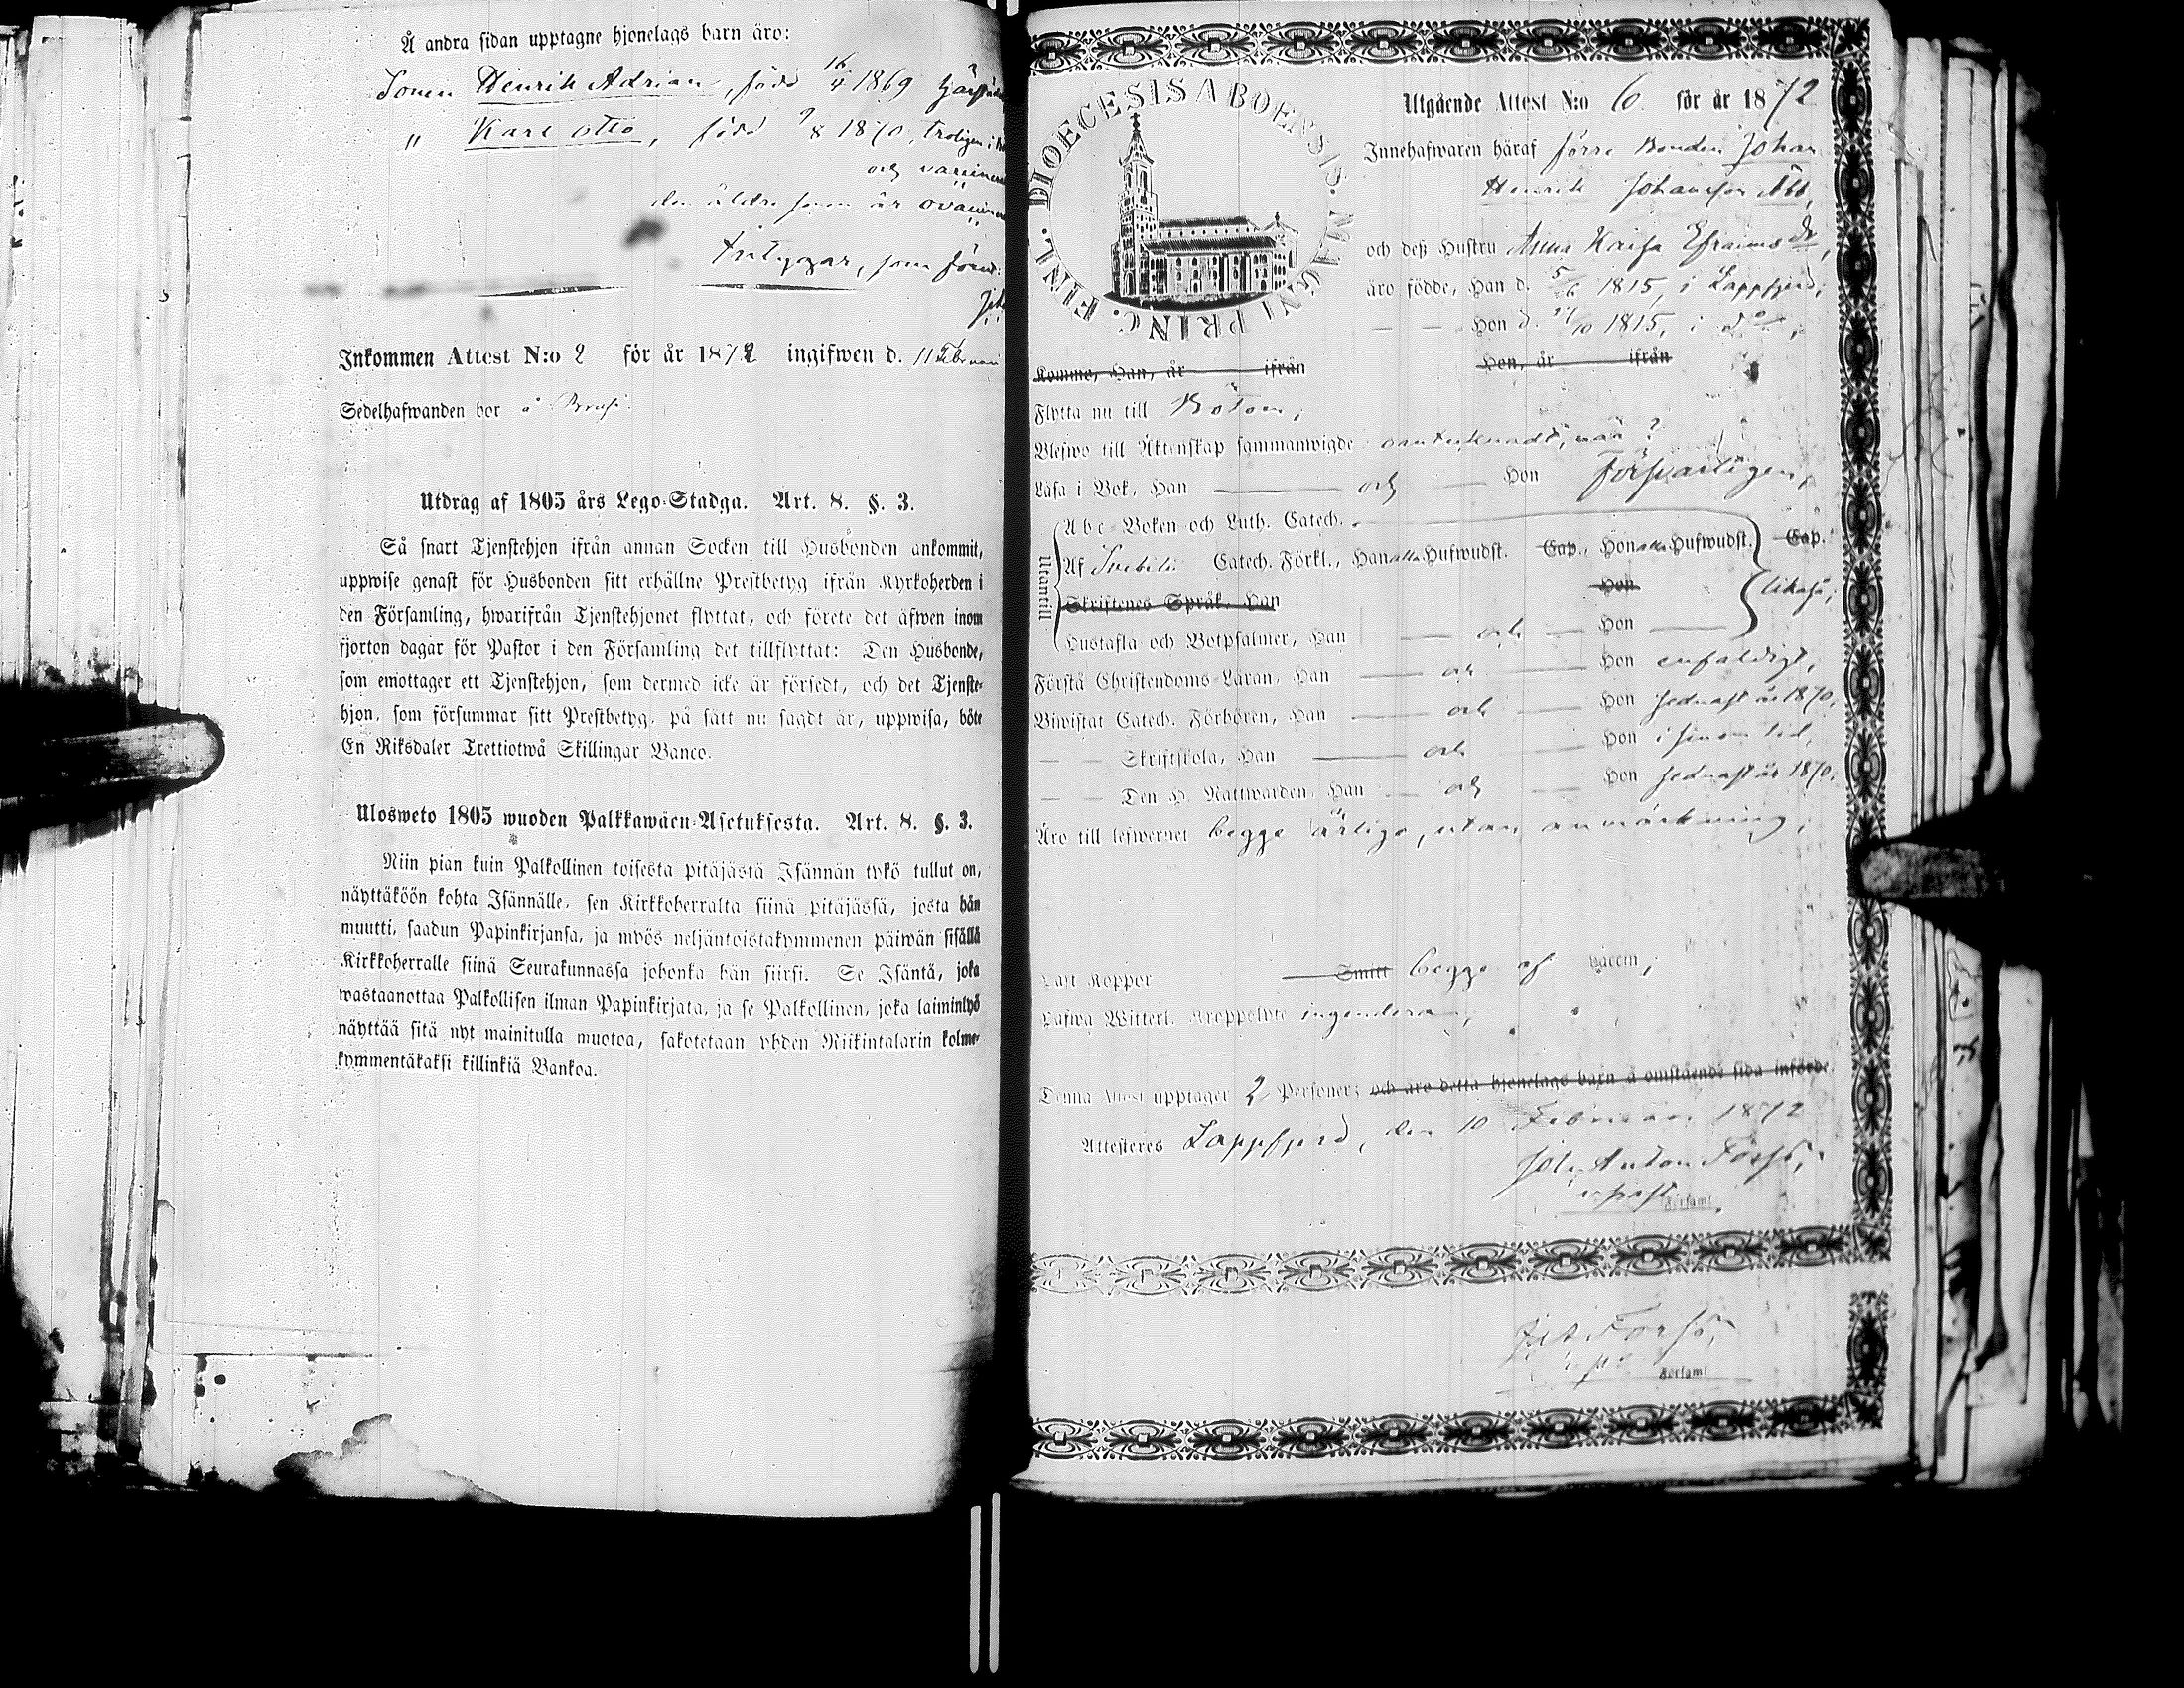 Å andra sidan upptagne hjonelags barn äro:
Sonen Henrik Adrian, född 16/4 1869
" Karl Otto, född 9/8 1870, troligen i
och vaccinerad
den äldre sonen är ovaccinerad
som förut
Inkommen Attest N:o 2 för år 1872 ingifwen d. 11 Februari
Sedelhafwanden bor å
Utdrag af 1805 års Lego-Stadga. Art. 8. §. 3.
Så snart Tjenstehjon ifrån annan Socken till Husbonden ankommit,
uppwise genast för Husbonden sitt erhållne Prestbetyg ifrån Kyrkoherden i
den Församling, hwarifrån Tjenstehjonet flyttat, och förete det äfwen inom
fjorton dagar för Pastor i den Församling det tillflyttat: Den Husbonde,
som emottager ett Tjenstehjon, som dermed icke är försedt, och det Tjenste-
hjon, som försummar sitt Prestbetyg, på sätt nu sagdt är, uppwisa, böte
En Riksdaler Trettiotwå Skillingar Banco.
Ulosweto 1805 wuoden Palkkawäen-Asetuksesta. Art. 8. §. 3.
Niin pian kuin Palkollinen toisesta pitäjästä Isännän tykö tullut on,
näyttäköön kohta Isännälle, sen Kirkkoherralta siinä pitäjässä, josta hän
muutti, saadun Papinkirjansa, ja myös neljäntoistakymmenen päiwän sisällä
Kirkkoherralle siinä Seurakunnassa johonka hän siirsi. Se Isäntä, joka
wastaanottaa Palkollisen ilman Papinkirjata, ja se Palkollinen, joka laiminlyö
näyttää sitä nyt mainitulla muotoa, sakotetaan yhden Riikintalarin kolme-
kymmentäkaksi killinkiä Bankoa.
DIOECESIS ABOENSIS. MAGNI PRINC. FINL.
Utgående Attest N:o 6 för år 1872
Innehafwaren häraf förre Bonden Johan
Henrik Johansson Åbb,
och deß Hustru Anna Kaisa Efraimsdr,
äro födde, Han d. 5/6 1815, i Lappfjerd,
— — Hon d. /10 1815, i do,
Komme, Han, år ifrån Hon, år ifrån
Flytta nu till Bötom,
Blefwo till Äktenskap sammanwigde oantecknadt, när?
Läsa i Bok, Han — och — Hon försvarligen,
Utantill
Abc-Boken och Luth. Catech.
Af Svebelii Catech. Förkl., Han alla Hufwudst. Cap., Hon alla Hufwudst. Cap.
Skriftenes Språk, Han Hon
likaså,
Hustafla och Botpsalmer, Han — och — Hon
Förstå Christendoms-Läran, Han — och — Hon enfaldigt,
Biwistat Catech. Förhören, Han — och — Hon sednast år 1870,
— — Skriftskola, Han — och — Hon i sinom tid,
— — Den H. Nattwarden, Han — och — Hon sednast år 1870,
Äro till lefwernet begge ärlige, utan anmärkning,
Haft Koppor Smitt begge af vaccin,
Hafwa Witterl. Kroppslyte ingendera,
Denna Attest upptager 2 Personer; och äro detta hjonelags barn å omstående sida införde.
Attesteras Lappfjerd, den 10 Februari 1872
Joh. Anton Forss,
Församl.
J. A. Forss,
Församl.